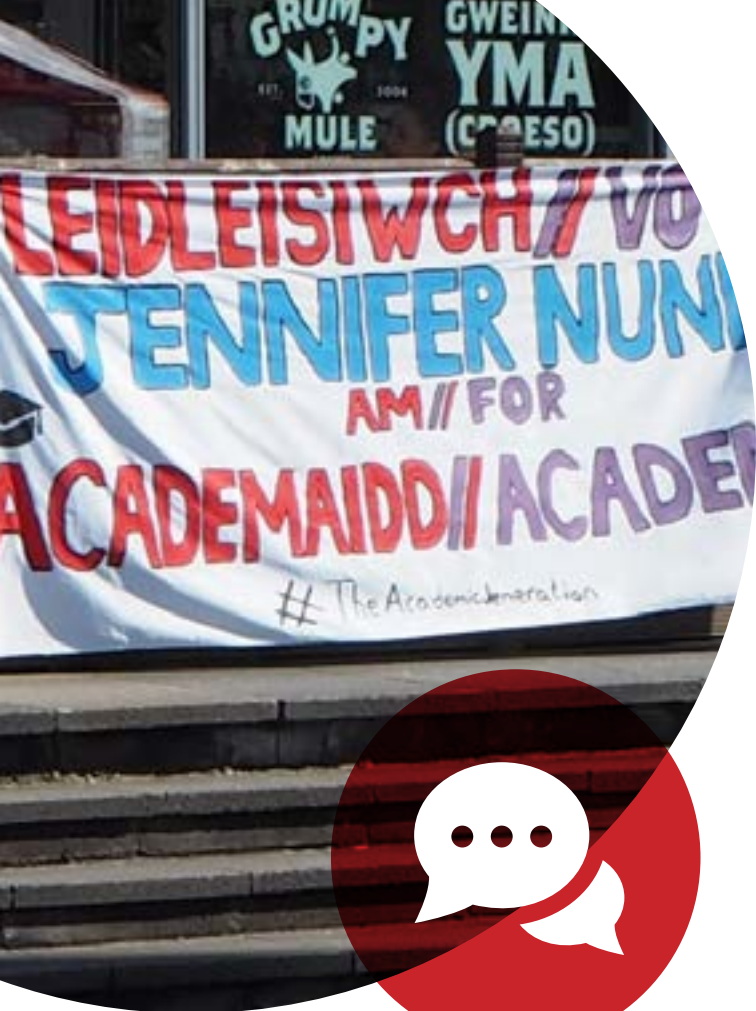 GRUMPY
EST. 2006
MULE
GWEINI
YMA
(CROESO)
LEIDLEISIWCH // VO
JENNIFER NUN
AM // FOR
ACADEMAIDD // ACADEM
#TheAcademicGeneration